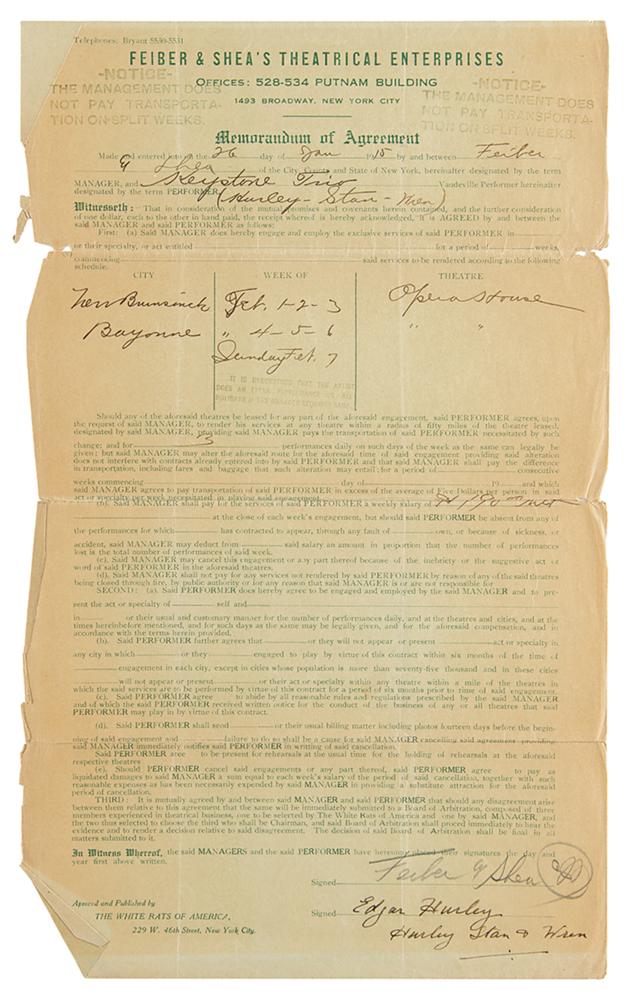 Telephones: Bryant 5530-5531
FEIBER & SHEA'S THEATRICAL ENTERPRISES
OFFICES: 528-534 PUTNAM BUILDING
1493 BROADWAY, NEW YORK CITY
-NOTICE-
THE MANAGEMENT DOES
NOT PAY TRANSPORTA-
TION ON SPLIT WEEKS.
-NOTICE-
THE MANAGEMENT DOES
NOT PAY TRANSPORTA-
TION ON SPLIT WEEKS.
Memorandum of Agreement
Made and entered into the 26 day of Jan 1915 by and between Feiber
& Shea of the City, County and State of New York, hereinafter designated by the term
MANAGER, and Keystone Trio Vaudeville Performer hereinafter
designated by the term PERFORMER. (Hurley-Stan-
Witnesseth: That in consideration of the mutual promises and covenants herein contained, and the further consideration
of one dollar, each to the other in hand paid, the receipt whereof is hereby acknowledged, it is AGREED by and between the
said MANAGER and said PERFORMER as follows:
First: (a) Said MANAGER does hereby engage and employ the exclusive services of said PERFORMER in
or their specialty, or act entitled for a period of weeks,
commencing said services to be rendered according to the following
schedule.
CITY WEEK OF THEATRE
New Brunswick Feb. 1-2-3 Opera House
Bayonne " 4-5-6 " "
Sunday Feb. 7
Should any of the aforesaid theatres be leased for any part of the aforesaid engagement, said PERFORMER agrees, upon
the request of said MANAGER, to render his services at any theatre within a radius of fifty miles of the theatre leased,
designated by said MANAGER, providing said MANAGER pays the transportation of said PERFORMER necessitated by such
change; and for 3 performances daily on such days of the week as the same can legally be
given; but said MANAGER may alter the aforesaid route for the aforesaid time of said engagement providing said alteration
does not interfere with contracts already entered into by said PERFORMER and that said MANAGER shall pay the difference
in transportation, including fares and baggage that such alteration may entail; for a period of consecutive
weeks commencing day of 19 and which
said MANAGER agrees to pay transportation of said PERFORMER in excess of the average of Five Dollars per person in said
act or specialty per week necessitated in playing said engagement.
(b). Said MANAGER shall pay for the services of said PERFORMER a weekly salary of
at the close of each week's engagement, but should said PERFORMER be absent from any of
the performances for which has contracted to appear, through any fault of own, or because of sickness, or
accident, said MANAGER may deduct from said salary an amount in proportion that the number of performances
lost is the total number of performances of said week.
(c). Said MANAGER may cancel this engagement or any part thereof because of the inebriety or the suggestive act or
word of said PERFORMER in the aforesaid theatres.
(d). Said MANAGER shall not pay for any services not rendered by said PERFORMER by reason of any of the said theatres
being closed through fire, by public authority or for any reason that said MANAGER is or are not responsible for.
SECOND: (a). Said PERFORMER does hereby agree to be engaged and employed by the said MANAGER and to pre-
sent the act or specialty of self and
in or their usual and customary manner for the number of performances daily, and at the theatres and cities, and at the
times hereinbefore mentioned, and for such days as the same may be legally given, and for the aforesaid compensation, and in
accordance with the terms herein provided.
(b). Said PERFORMER further agrees that or they will not appear or present act or specialty in
any city in which or they engaged to play by virtue of this contract within six months of the time of
engagement in each city, except in cities whose population is more than seventy-five thousand and in these cities
will not appear or present or their act or specialty within any theatre within a mile of the theatres in
which the said services are to be performed by virtue of this contract for a period of six months prior to time of said engagement.
(c). Said PERFORMER agree to abide by all reasonable rules and regulations prescribed by the said MANAGER
and of which the said PERFORMER received written notice for the conduct of the business of any or all theatres that said
PERFORMER may play in by virtue of this contract.
(d). Said PERFORMER shall send or their usual billing matter including photos fourteen days before the begin-
ning of said engagement and failure to do so shall be a cause for said MANAGER cancelling said agreement providing
said MANAGER immediately notifies said PERFORMER in writting of said cancellation.
Said PERFORMER aree to be present for rehearsals at the usual time for the holding of rehearsals at the aforesaid
respective theatres
(e). Should PERFORMER cancel said engagements or any part thereof, said PERFORMER agree to pay as
liquidated damages to said MANAGER a sum equal to each week's salary of the period of said cancellation, together with such
reasonable expenses as has been necessarily expended by said MANAGER in providing a substitute attraction for the aforesaid
period of cancellation.
THIRD: It is mutually agreed by and between said MANAGER and said PERFORMER that should any disagreement arise
between them relative to this agreement that the same will be immediately submitted to a Board of Arbitration, composed of three
members experienced in theatrical business, one to be selected by The White Rats of America and one by said MANAGER, and
the two thus selected to choose the third who shall be Chairman, and said Board of Arbitration shall proceed immediately to hear the
evidence and to render a decision relative to said disagreement. The decision of said Board of Arbitration shall be final in all
matters submitted to it.
In Witness Whereof, the said MANAGERS and the said PERFORMER have hereunto placed their signatures the day and
year first above written.
Signed Feiber & Shea
Approved and Published by
THE WHITE RATS OF AMERICA,
229 W. 46th Street, New York City.
Signed Edgar Hurley
Hurley Stan & Wren